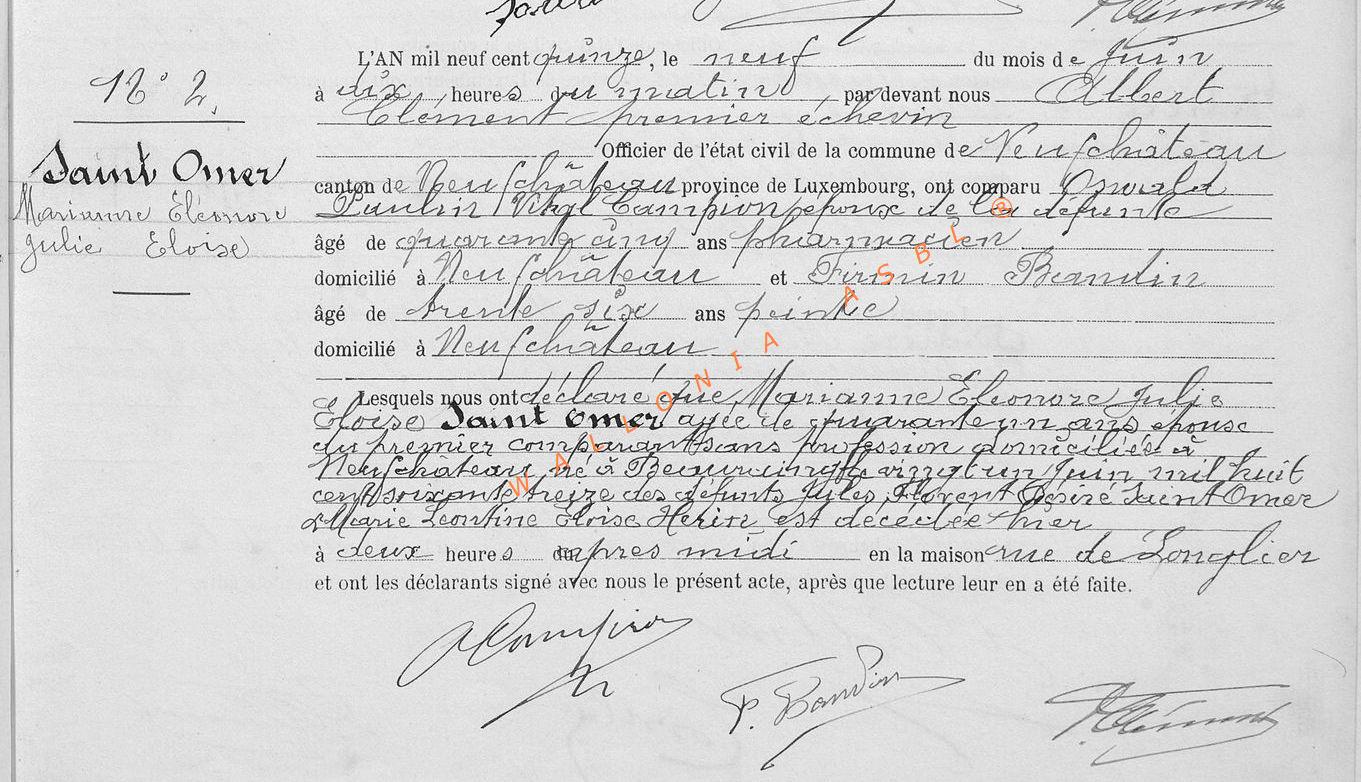 N° 2.
Saint Omer
Marianne Eléonore
Julie Eloïse
L'AN mil neuf cent quinze, le neuf du mois de Juin
à dix heures du matin par devant nous Albert
Clément premier échevin
Officier de l'état civil de la commune de Neufchâteau
canton de Neufchâteau province de Luxembourg, ont comparu Oswald
Paulin Campion époux de la défunte
âgé de quarante cinq ans pharmacien
domicilié à Neufchâteau et Firmin Baudin
âgé de trente six ans peintre
domicilié à Neufchâteau
Lesquels nous ont déclaré que Marianne Eléonore Julie
Eloïse Saint Omer agée de quarante un ans epouse
du premier comparant sans profession domiciliés à
Neufchâteau, né à Beauraing le vingt un Juin mil huit
cent soixante treize des défunts Jules Florent Désiré Saint Omer
& Marie Leontine Eloïse Herin est décédée hier
à deux heures du apres midi en la maison rue de Longlier
et ont les déclarants signé avec nous le présent acte, après que lecture leur en a été faite.
O Campion
F. Baudin
A Clément
WALLONIA ASBL ®